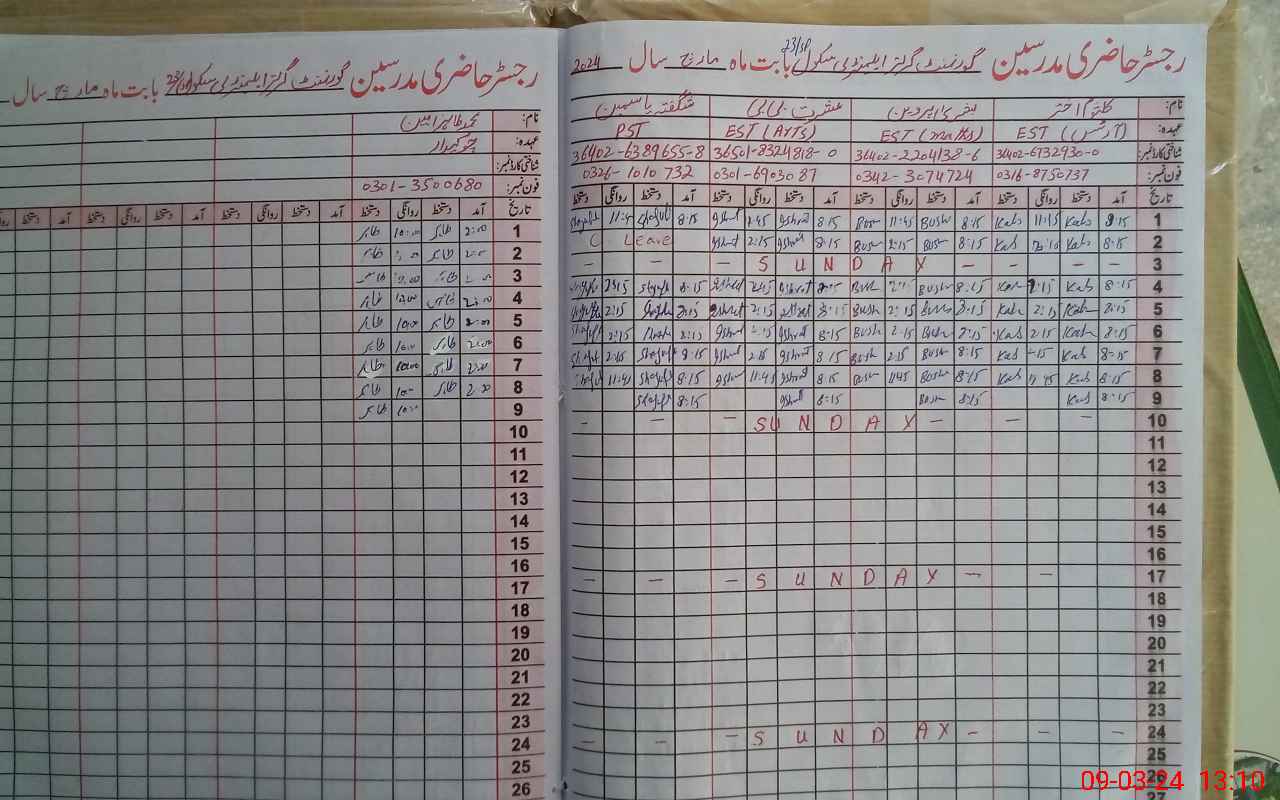 رجسٹر حاضری مدرسین گورنمنٹ گرلز ایلیمنٹری سکول 73/SP بابت ماہ مارچ سال 2024
نام: کلثوم اختر بشریٰ پروین عشرت بی بی شگفتہ یاسمین
عہدہ: EST (آرٹس) EST (Maths) EST (Arts) PST
شناختی کارڈ نمبر: 36402-6732930-0 36402-2204138-6 36501-8324818-0 36402-6389655-8
فون نمبر: 0316-8750737 0342-3074724 0301-6903087 0326-1010732
تاریخ آمد دستخط روانگی دستخط آمد دستخط روانگی دستخط آمد دستخط روانگی دستخط آمد دستخط روانگی دستخط
1 8:15 11:45 8:15 Bush 11:45 Bush 8:15 Ishrat 11:45 8:15
2 8:15 2:15 8:15 Bush 2:15 Bush 8:15 Ishrat 2:15 C. Leave
3 — — S U N D A Y — — —
4 8:15 2:15 8:15 Bush 2:15 Bush 8:15 Ishrat 2:15 8:15 2:15
5 8:15 2:15 8:15 2:15 Bush 8:15 Ishrat 2:15 8:15 2:15
6 8:15 2:15 8:15 Bush 2:15 Bush 8:15 Ishrat 2:15 2:15
7 8:15 8:15 Bush 2:15 Bush 8:15 Ishrat 2:15 8:15 2:15
8 8:15 11:45 8:15 Bush 11:45 Bush 8:15 Ishrat 11:45 8:15 11:45
9 8:15 8:15 Bush 8:15 Ishrat 8:15
10 — — — S U N D A Y — — —
11
12
13
14
15
16
17 — — — S U N D A Y — —
18
19
20
21
22
23
24 — — — S U N D A Y — — —
25
26
27
رجسٹر حاضری مدرسین گورنمنٹ گرلز ایلیمنٹری سکول بابت ماہ مارچ سال
نام: محمد طاہر امین
عہدہ: چوکیدار
شناختی کارڈ نمبر:
فون نمبر: 0301-3500680
تاریخ آمد دستخط روانگی دستخط آمد دستخط روانگی دستخط آمد دستخط روانگی دستخط آمد دستخط روانگی
1 2:00 طاہر 10:00 طاہر
2 طاہر طاہر
3 طاہر طاہر
4 2:00 طاہر 10:00 طاہر
5 2:00 طاہر 10:00 طاہر
6 2:00 طاہر 10:00 طاہر
7 2:00 طاہر 10:00 طاہر
8 2:00 طاہر 10:00 طاہر
9 10:00 طاہر
10
11
12
13
14
15
16
17
18
19
20
21
22
23
24
25
26
09-03-24 13:10